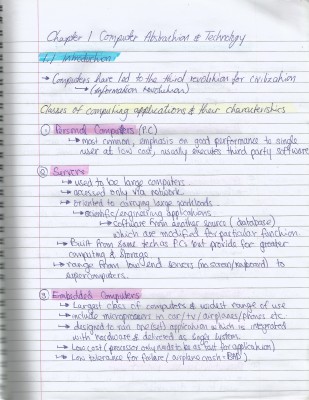 Chapter 1 Computer Abstraction & Technology
1.1 Introduction
→ Computers have led to the third revolution for civilization
→ (information revolution)
Classes of computing applications & their characteristics
① Personal Computers (PC)
↳ most common, emphasis on good performance to single
user at low cost, usually executes third party software
② Servers
↳ used to be large computers
↳ accessed only via network
↳ oriented to carrying large workloads
↳ scientific/engineering applications
↳ software from another source (database)
which are modified for particular function.
↳ Built from same tech as PCs but provide for greater
computing & storage
↳ range from low-end servers (no screen/keyboard) to
supercomputers.
③ Embedded Computers
↳ Largest class of computers & widest range of use
↳ include microprocessor in car/tv/airplanes/phones etc.
↳ designed to run one (set) application which is integrated
with hardware & delivered as single system.
↳ Low cost (processor only needs to be as fast for application)
↳ Low tolerance for failure (airplane crash = BAD).